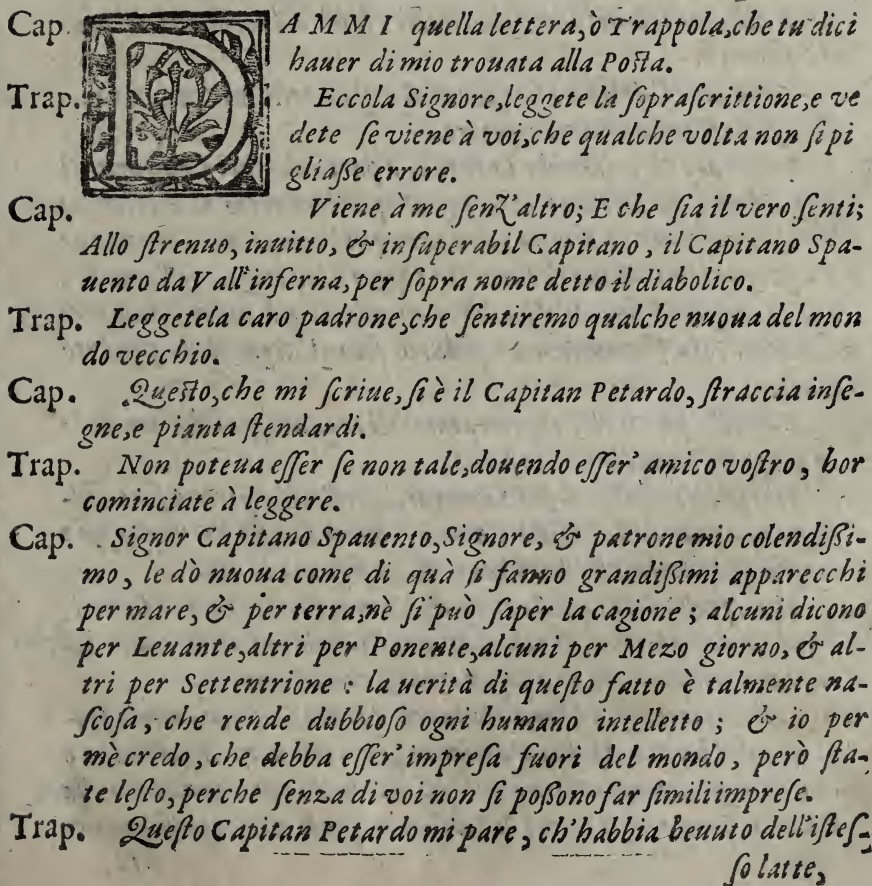 Cap. DAMMI quella lettera, ò Trappola, che tu dici
hauer di mio trouata alla Posta.
Trap. Eccola Signore, leggete la soprascrittione, e ve
dete se viene à voi, che qualche volta non si pi
gliasse errore.
Cap. Viene à me senz'altro; E che sia il vero senti;
Allo strenuo, inuitto, & insuperabil Capitano, il Capitano Spa-
uento da Vall'inferna, per sopra nome detto il diabolico.
Trap. Leggetela caro padrone, che sentiremo qualche nuoua del mon
do vecchio.
Cap. Questo, che mi scriue, si è il Capitan Petardo, straccia inse-
gne, e pianta stendardi.
Trap. Non poteua esser se non tale, douendo esser' amico vostro, hor
cominciate à leggere.
Cap. Signor Capitano Spauento, Signore, & patrone mio colendissi-
mo, le dò nuoua come di quà si fanno grandissimi apparecchi
per mare, & per terra, nè si può saper la cagione; alcuni dicono
per Leuante, altri per Ponente, alcuni per Mezo giorno, & al-
tri per Settentrione: la uerità di questo fatto è talmente na-
scosa, che rende dubbioso ogni humano intelletto; & io per
mè credo, che debba esser' impresa fuori del mondo, però sta-
te lesto, perche senza di voi non si possono far simili imprese.
Trap. Questo Capitan Petardo mi pare, ch'habbia beuuto dell'istes-
so latte,